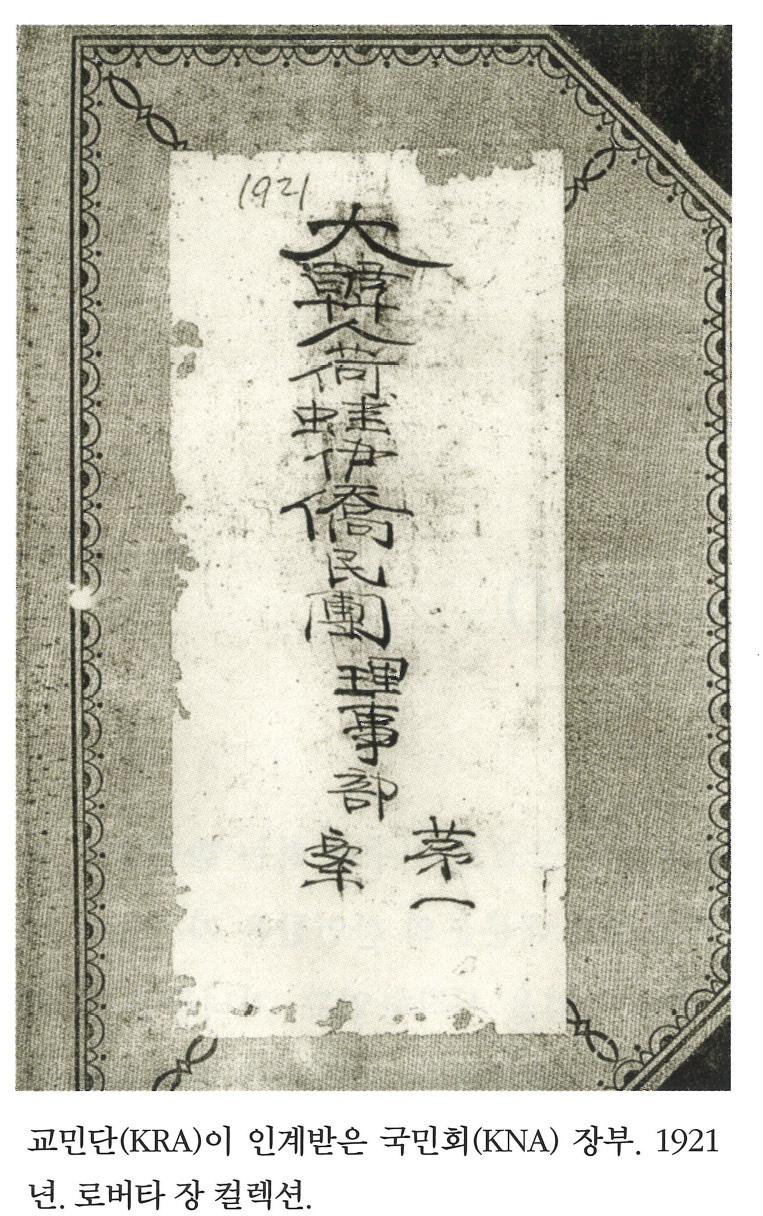 1921
大韓人荷蛙伊僑民團理事部
苐一
교민단(KRA)이 인계받은 국민회(KNA) 장부. 1921
년. 로버타 장 컬렉션.